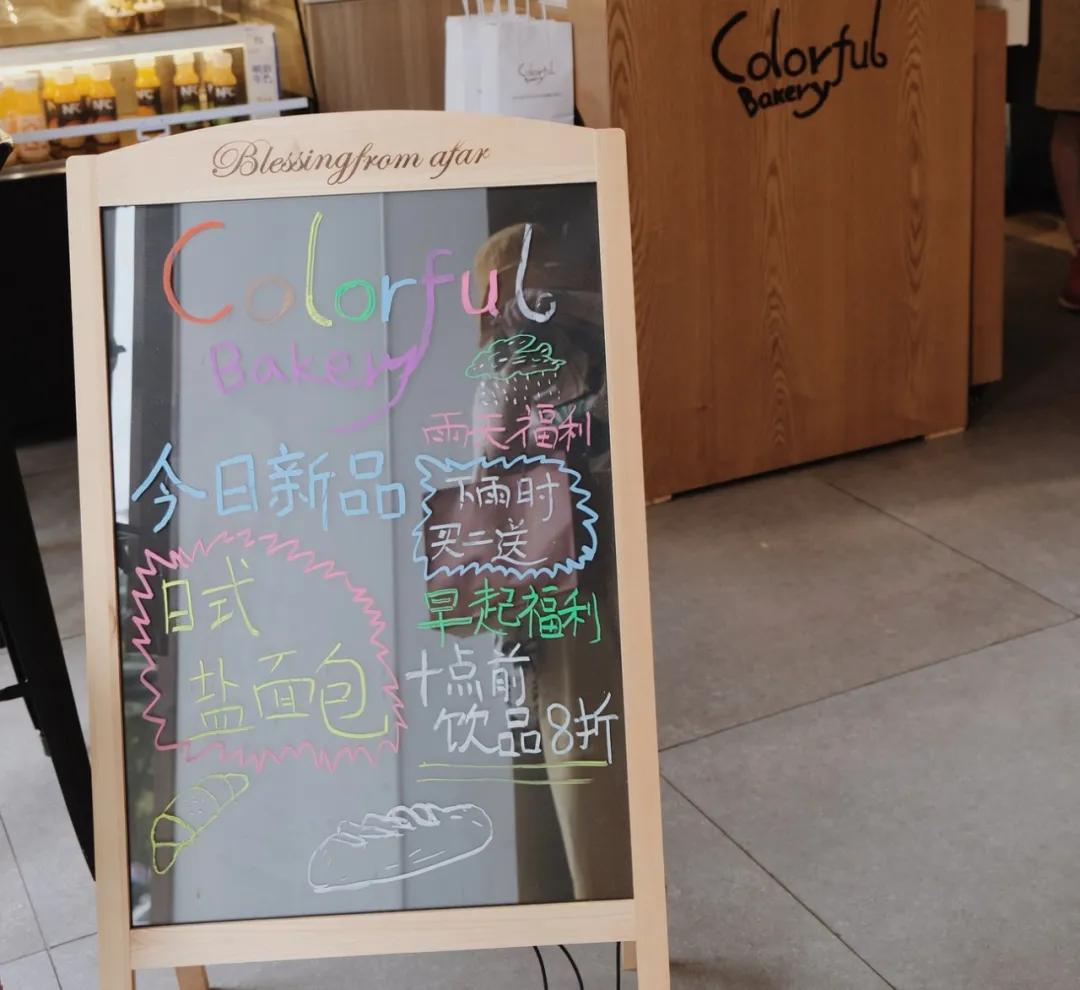 Colorful
Bakery
Colorful
Bakery
NFC
NFC
NFC
NFC
Blessing from afar
Colorful
Bakery
雨天福利
今日新品
下雨时
买二送一
日式
盐面包
早起福利
十点前
饮品8折